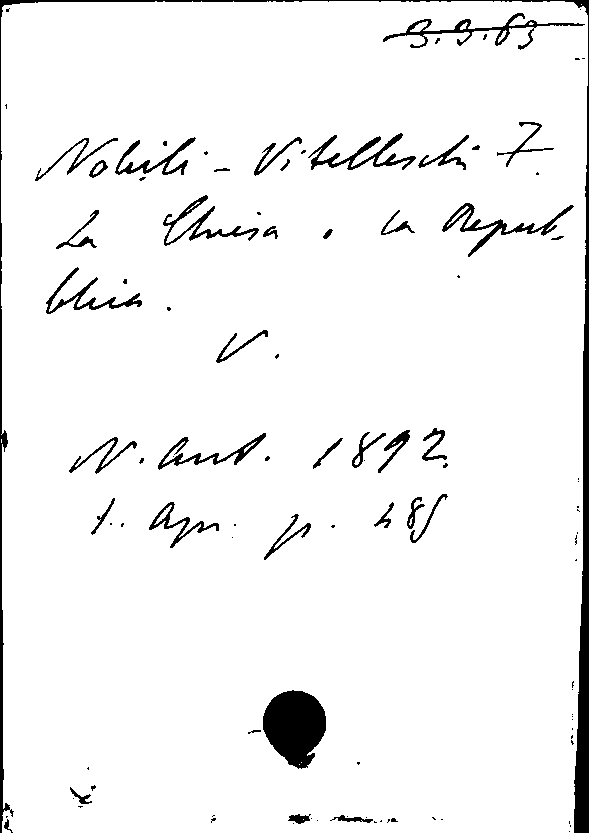 3.3.63
Nobili-Vitelleschi F.
La Chiesa e la Repub-
blica.
V.
N. Ant. 1892
1. Apr. p. 485